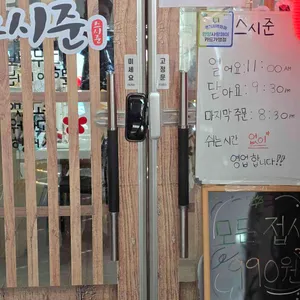 스시준
미세요
고정문
스시준
열어요! 11:00 AM
닫아요. 9:30 PM
마지막 주문: 8:30 PM
쉬는시간 없이
영업합니다!!!
모둠 접시
990원